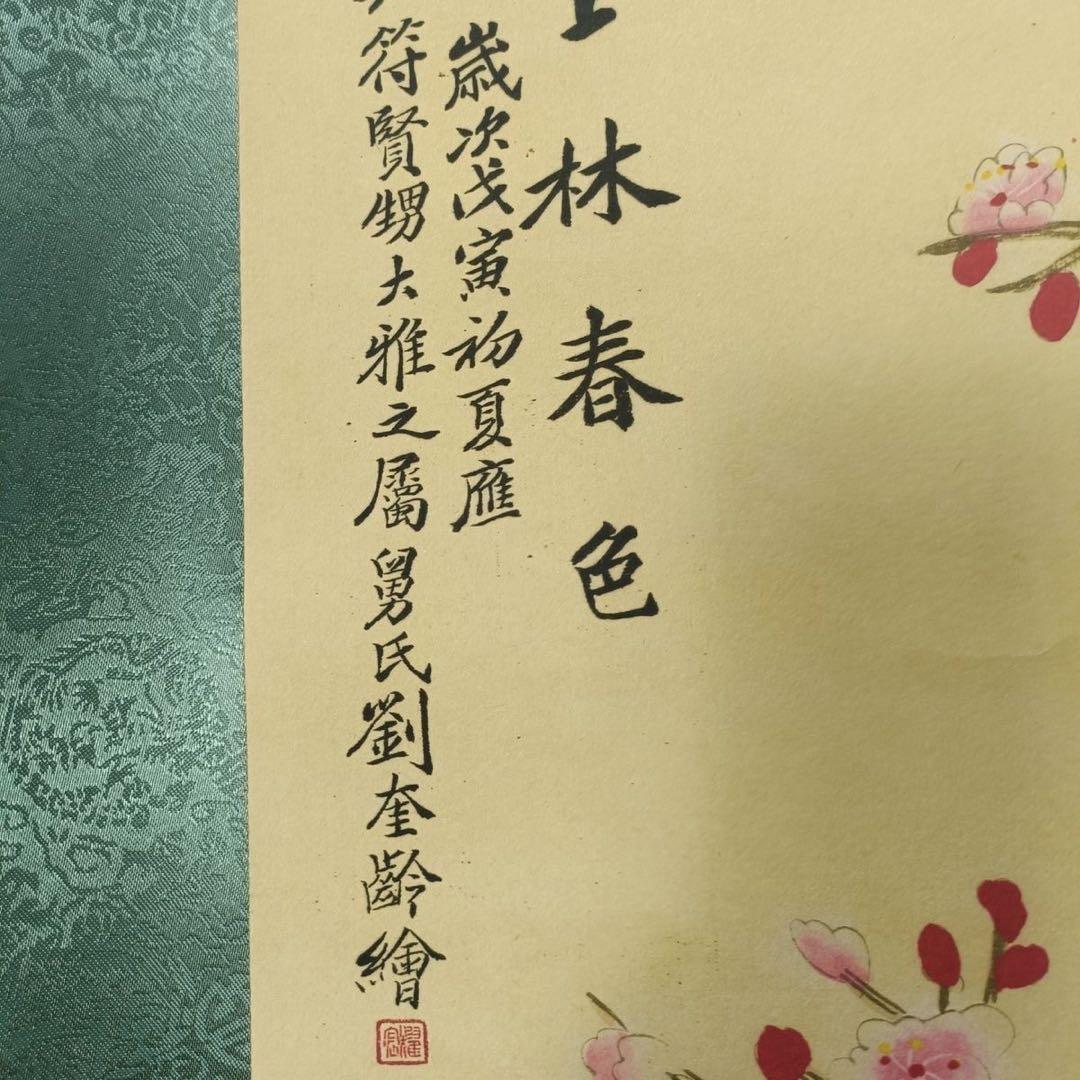 上林春色
歲次戊寅初夏應
符賢甥大雅之屬舅氏劉奎齡繪